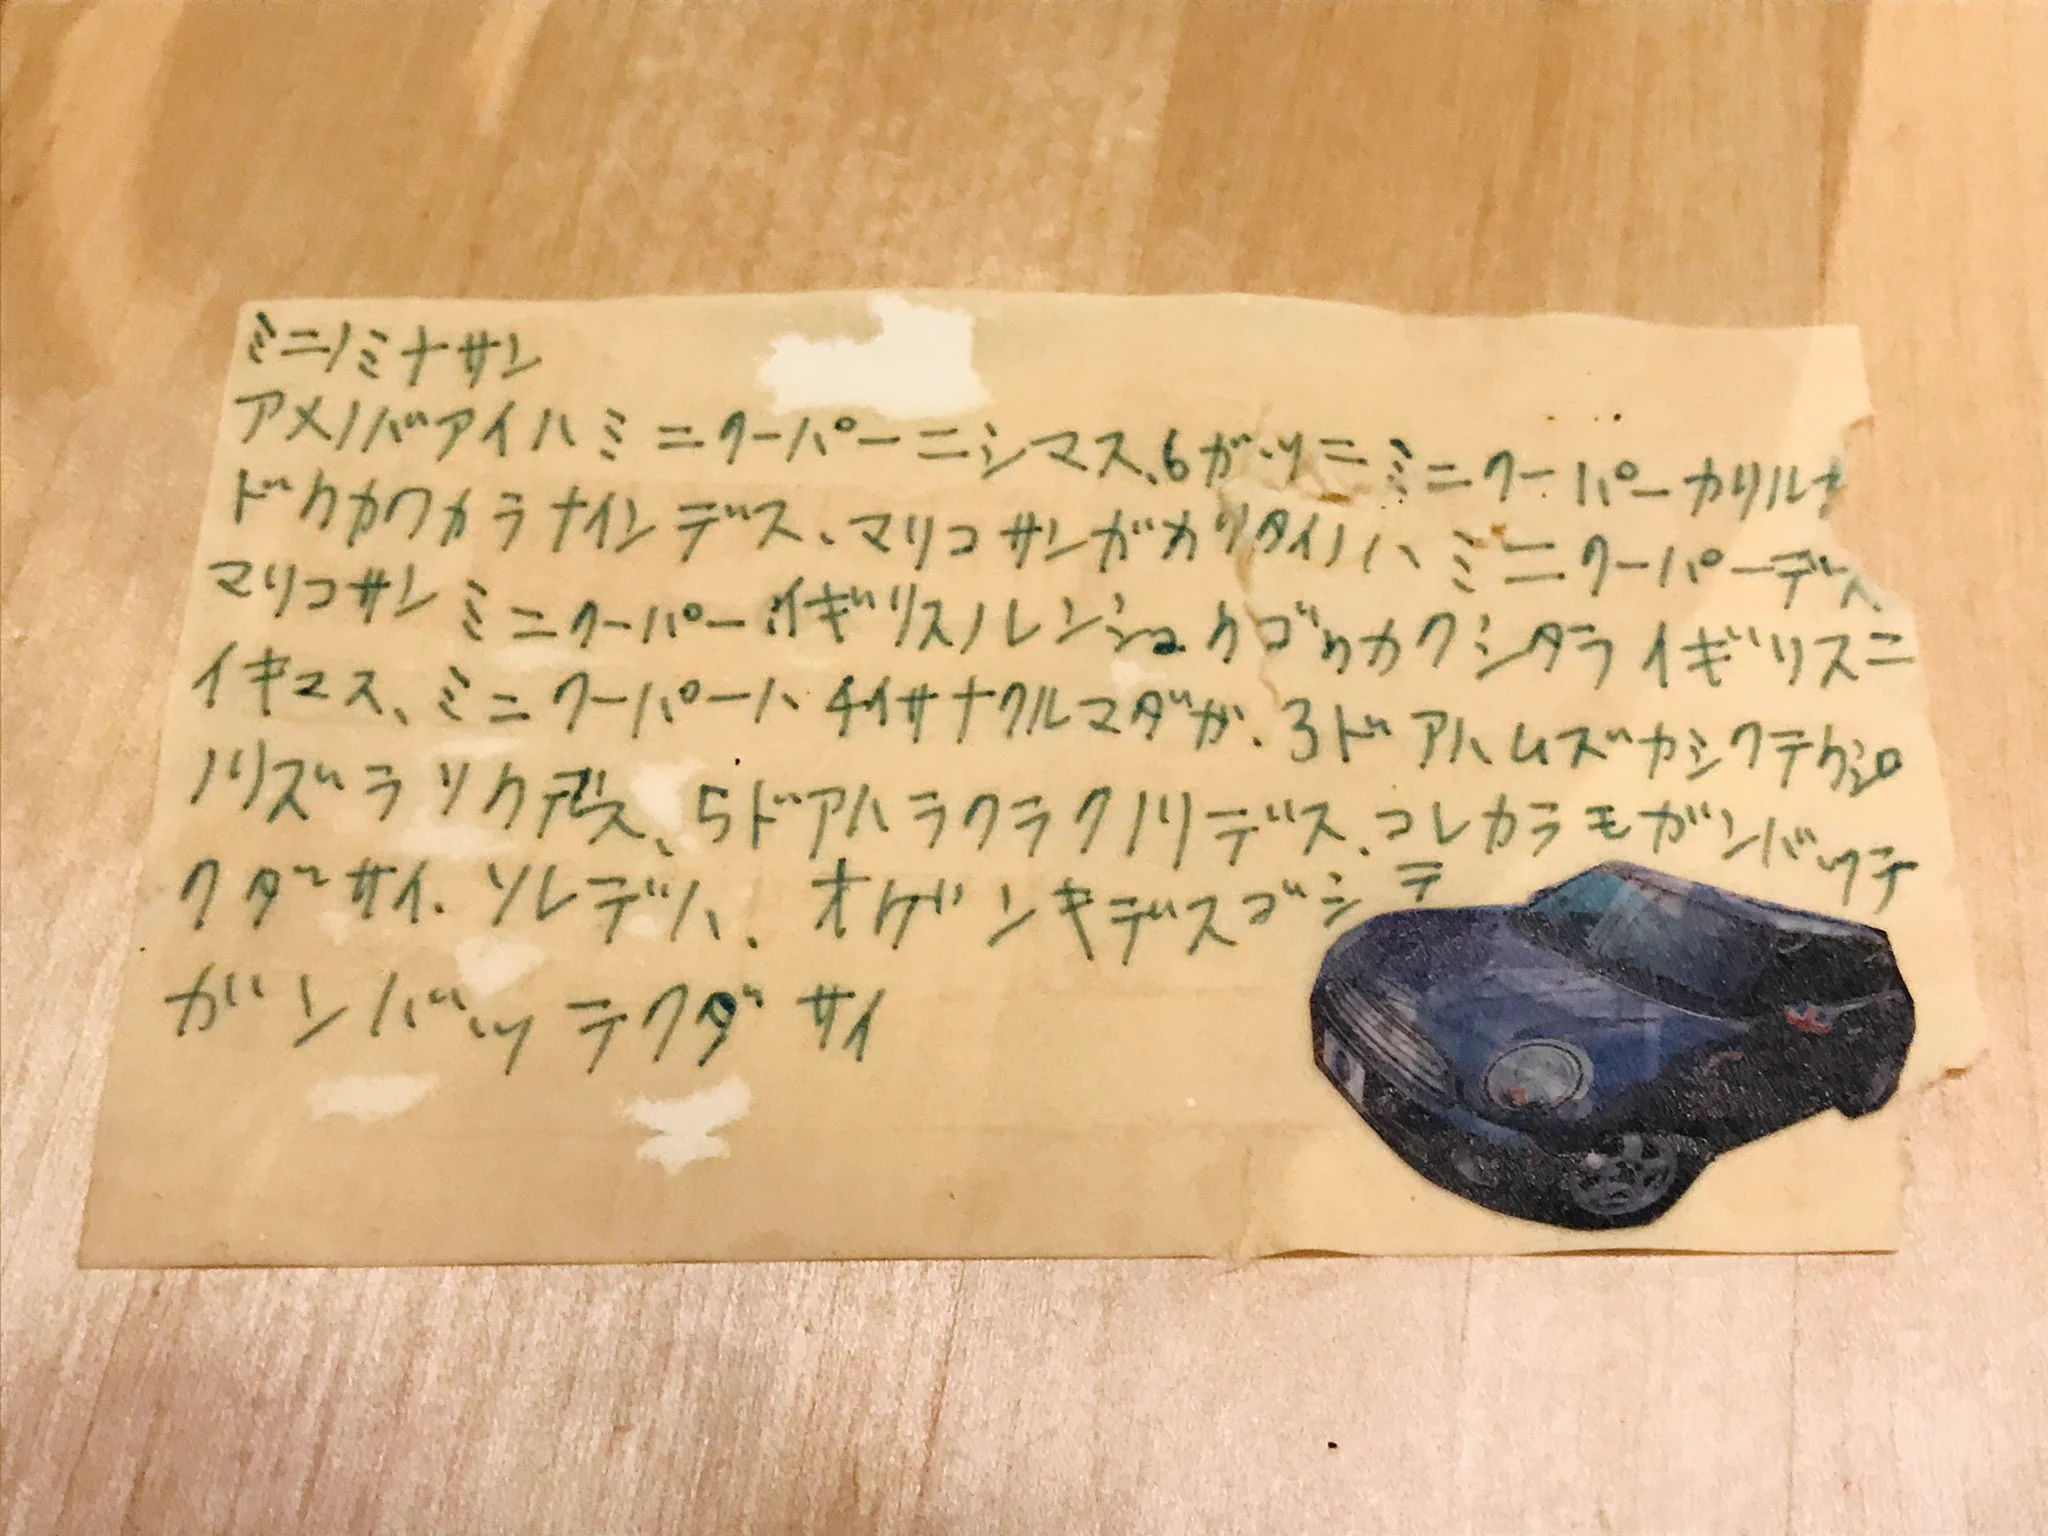 ミニノミナサン
アメノバアイハミニクーパーニシマス、6ガツニミニクーパーカリルカ
ドウカワカラナインデス、マリコサンガカリタイノハミニクーパーデス
マリコサンミニクーパーイギリスノレンシュウゴウカクシタライギリスニ
イキマス、ミニクーパーハチイサナクルマダガ、3ドアハムズカシクテ
ノリズラソウデス、5ドアハラクラクノリデス、コレカラモガンバッテ
クダサイ、ソレデハ、オゲンキデスゴシテ
ガンバッテクダサイ